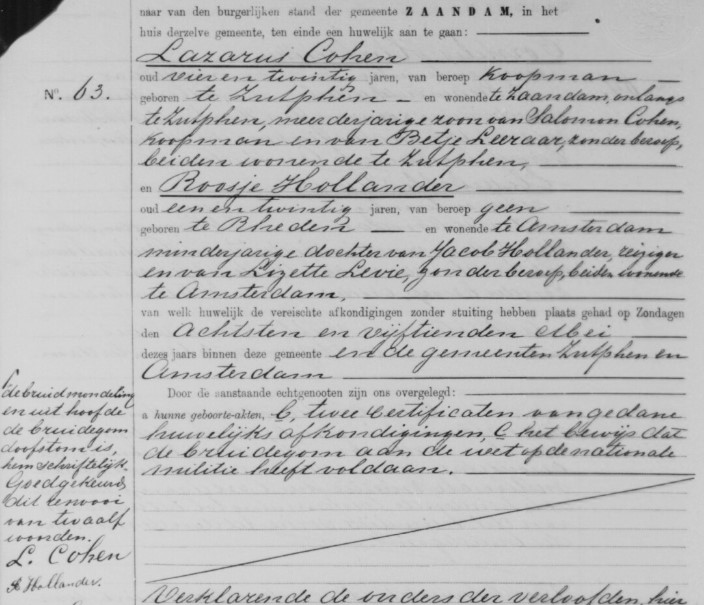 naar van den burgerlijken stand der gemeente ZAANDAM, in het
huis derzelve gemeente, ten einde een huwelijk aan te gaan:
Lazarus Cohen
oud vier en twintig jaren, van beroep koopman
No. 63.
geboren te Zutphen en wonende te Zaandam, onlangs
te Zutphen, meerderjarige zoon van Salomon Cohen,
koopman en van Betje Leeraar, zonder beroep,
beiden wonende te Zutphen,
en Roosje Hollander
oud een en twintig jaren, van beroep geen
geboren te Rheden en wonende te Amsterdam
minderjarige dochter van Jacob Hollander, reiziger
en van Lizette Levie, zonder beroep, beiden wonende
te Amsterdam,
van welk huwelijk de vereischte afkondigingen zonder stuiting hebben plaats gehad op Zondagen
den Achtsten en vijftienden Mei
dezes jaars binnen deze gemeente en de gemeenten Zutphen en
Amsterdam
Door de aanstaande echtgenooten zijn ons overgelegd:
a hunne geboorte-akten, b, twee certificaten van gedane
huwelijks afkondigingen, c het bewijs dat
de bruidegom aan de wet op de nationale
militie heeft voldaan.
de bruid mondeling
en uit hoofde
de bruidegom
doofstom is,
hem schriftelijk.
Goedgekeurd
dit renvooi
van twaalf
woorden.
L. Cohen
R Hollander.
Verklarende de ouders der verloofden, hier